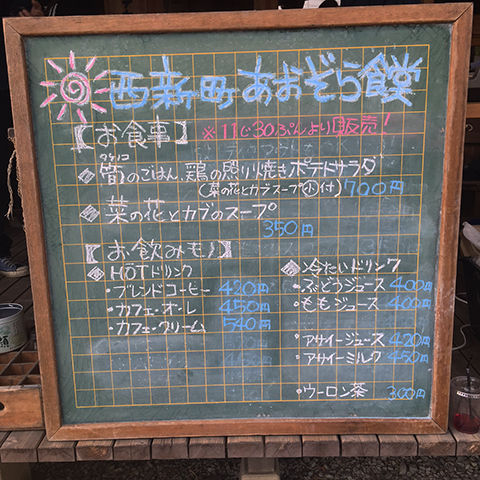 西新町あおぞら食堂
【お食事】 ※11じ30ぷんより販売!
タケノコ
筍のごはん、鶏の照り焼きポテトサラダ
(菜の花とカブスープ小付) 700円
菜の花とカブのスープ
350円
【お飲みもの】
HOTドリンク
・ブレンドコーヒー 420円
・カフェ・オ・レ 450円
・カフェ・クリーム 540円
冷たいドリンク
・ぶどうジュース 400円
・ももジュース 400円
・アサイージュース 420円
・アサイーミルク 450円
・ウーロン茶 300円